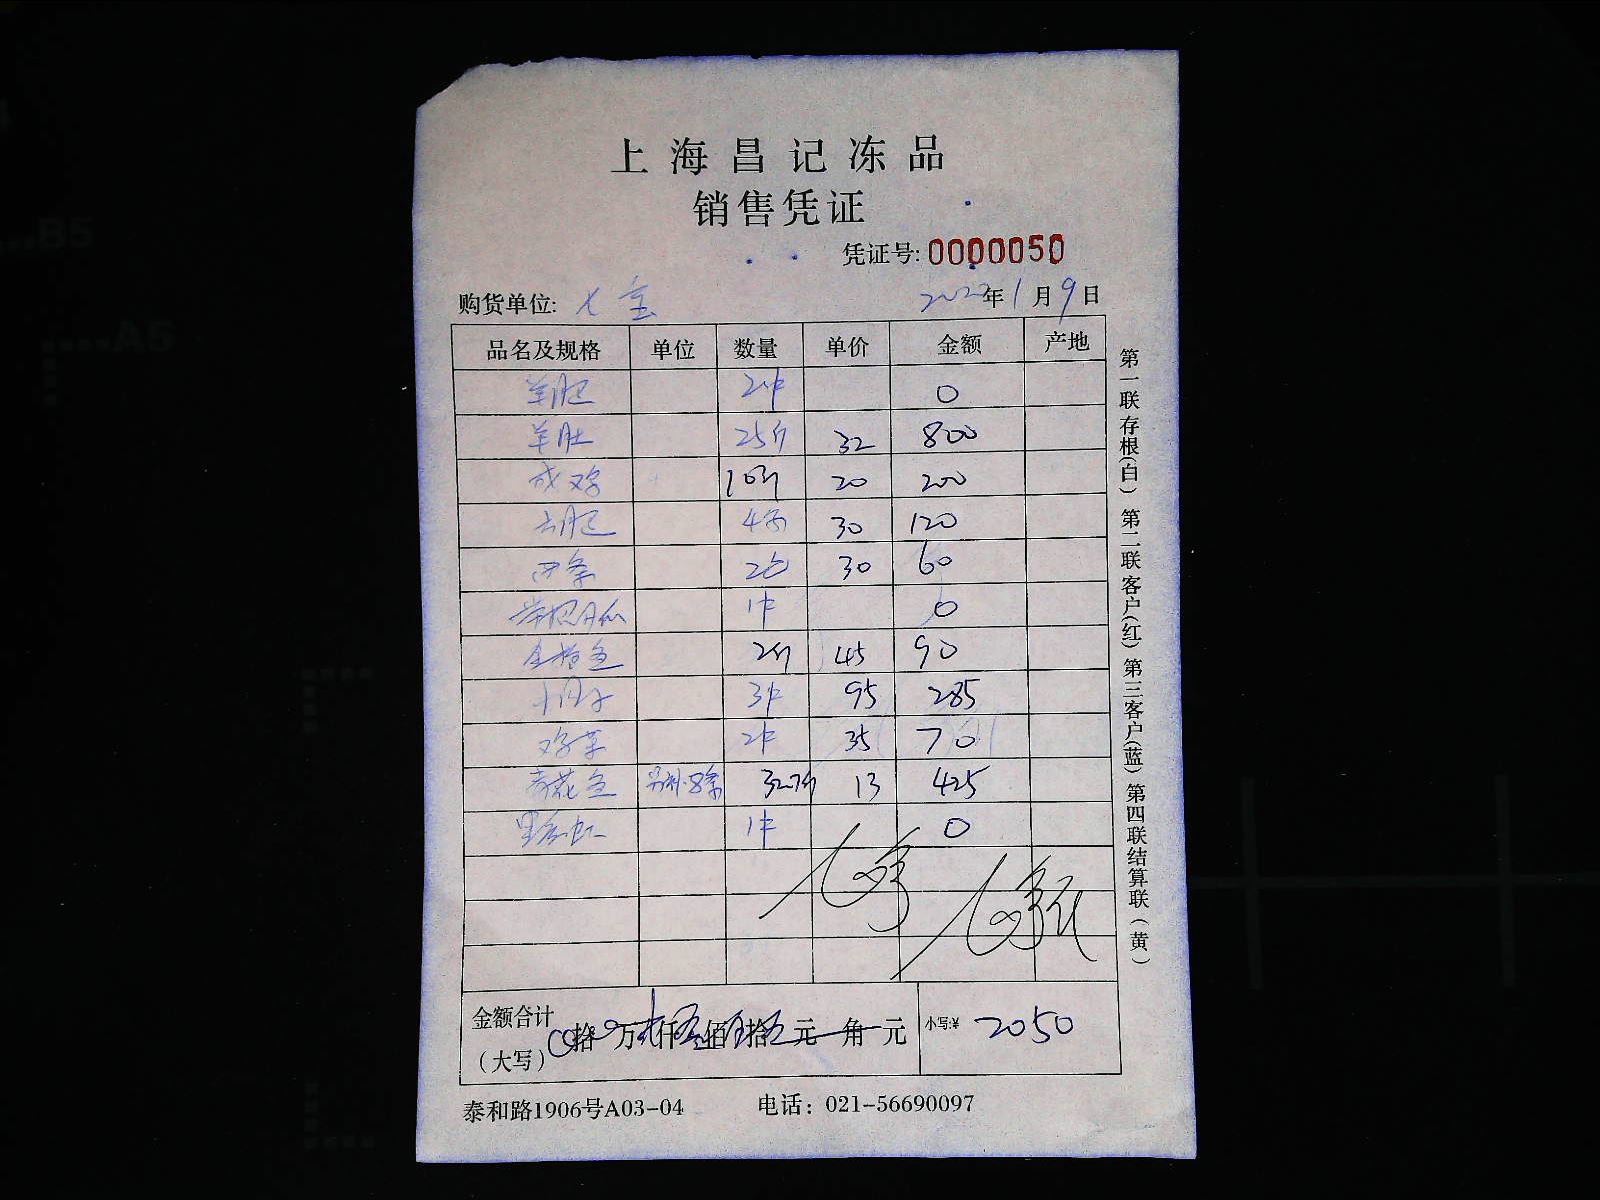 上海昌记冻品
销售凭证
凭证号: 0000050
购货单位: 七宝 2022年1月9日
品名及规格 单位 数量 单价 金额 产地
羊肥 2件 0
羊肚 25斤 32 800
成鸡 10斤 20 200
4条 30 120
2包 30 60
1件 0
金枪鱼 2斤 45 90
3件 95 285
2件 35 70
青花鱼 327斤 13 425
1件 0
金额合计(大写) 拾 万 仟 佰 拾 元 角 元 小写:¥ 2050
泰和路1906号A03-04 电话: 021-56690097
第一联存根(白) 第二联客户(红) 第三客户(蓝) 第四联结算联(黄)